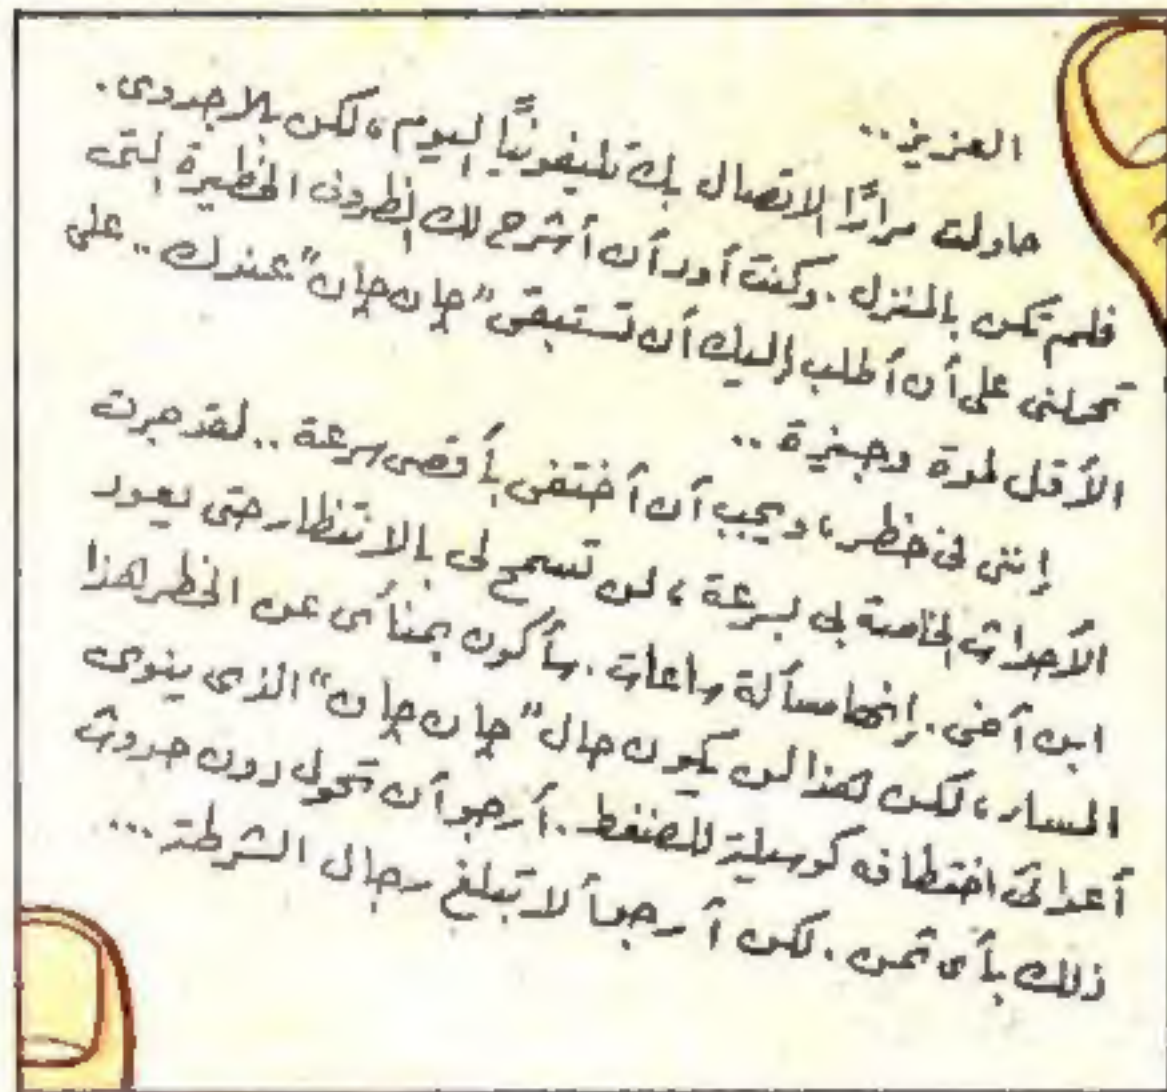 العزيز..
حاولت مرارًا الاتصال بك تليفونيًّا اليوم، لكن بلا جدوى.
فلم تكن بالمنزل. وكنت أود أن أشرح لك الظروف الخطيرة التى
تحملنى على أن أطلب إليك أن تستبقى "چان چان" عندك.. على
الأقل لمدة وجيزة..
إننى فى خطر، ويجب أن أختفى بأقصى سرعة.. لقد جرت
الأحداث الخاصة بى بسرعة، لن تسمح لى بالانتظار حتى يعود
ابن أخى. إنها مسألة ساعات. سأكون بمنأى عن الخطر هذا
المساء، لكن هذا لن يكون حال "چان چان" الذى ينوى
أعدائى اختطافه كوسيلة للضغط. أرجو أن تحول دون حدوث
ذلك بأى ثمن. لكن أرجو ألا تبلغ رجال الشرطة...